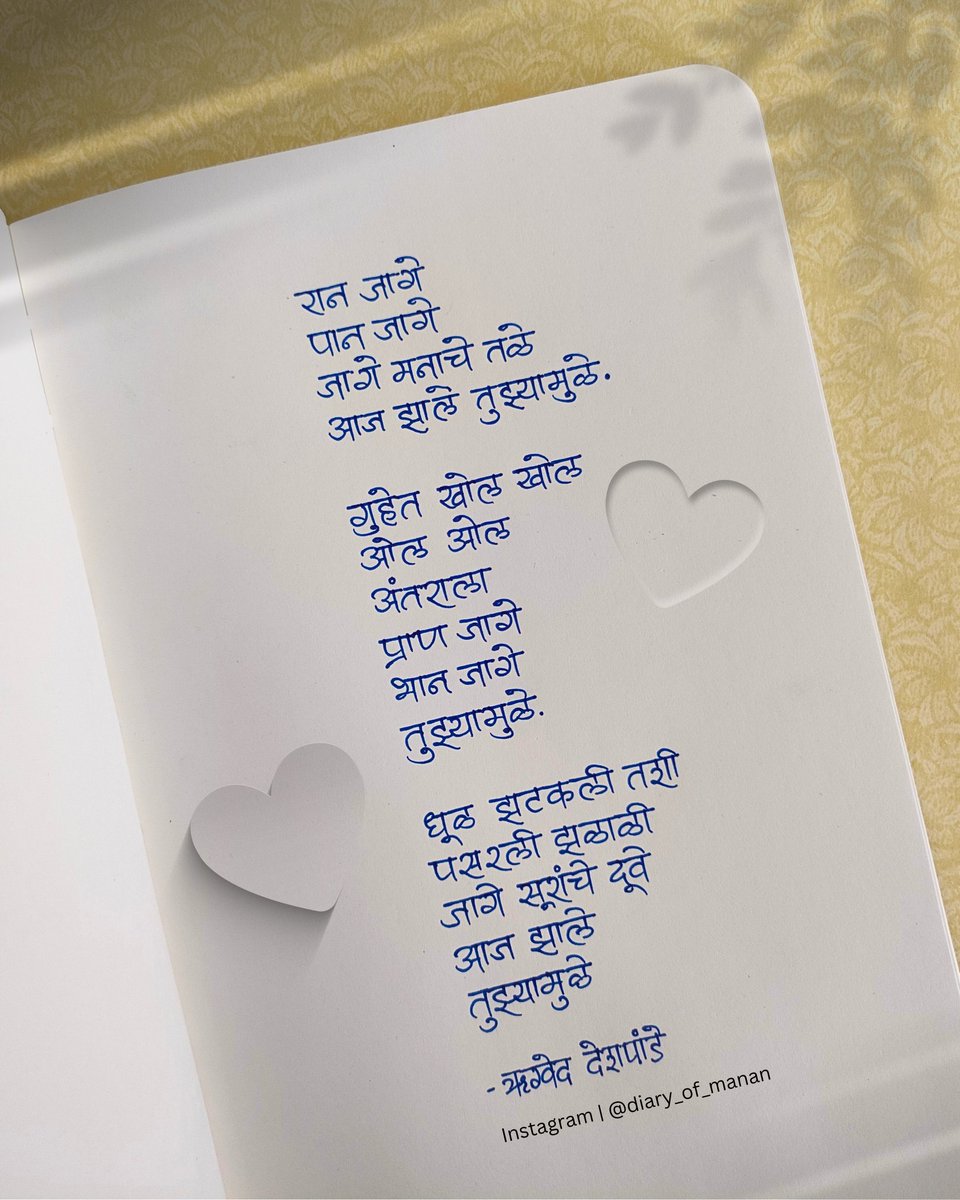 रान जागे
पान जागे
जागे मनाचे तळे
आज झाले तुझ्यामुळे.
गुहेत खोल खोल
ओल ओल
अंतराला
प्राण जागे
भान जागे
तुझ्यामुळे.
धूळ झटकली तशी
पसरली झळाळी
जागे सूरांचे दूवे
आज झाले
तुझ्यामुळे
-ऋग्वेद देशपांडे
Instagram | @diary_of_manan